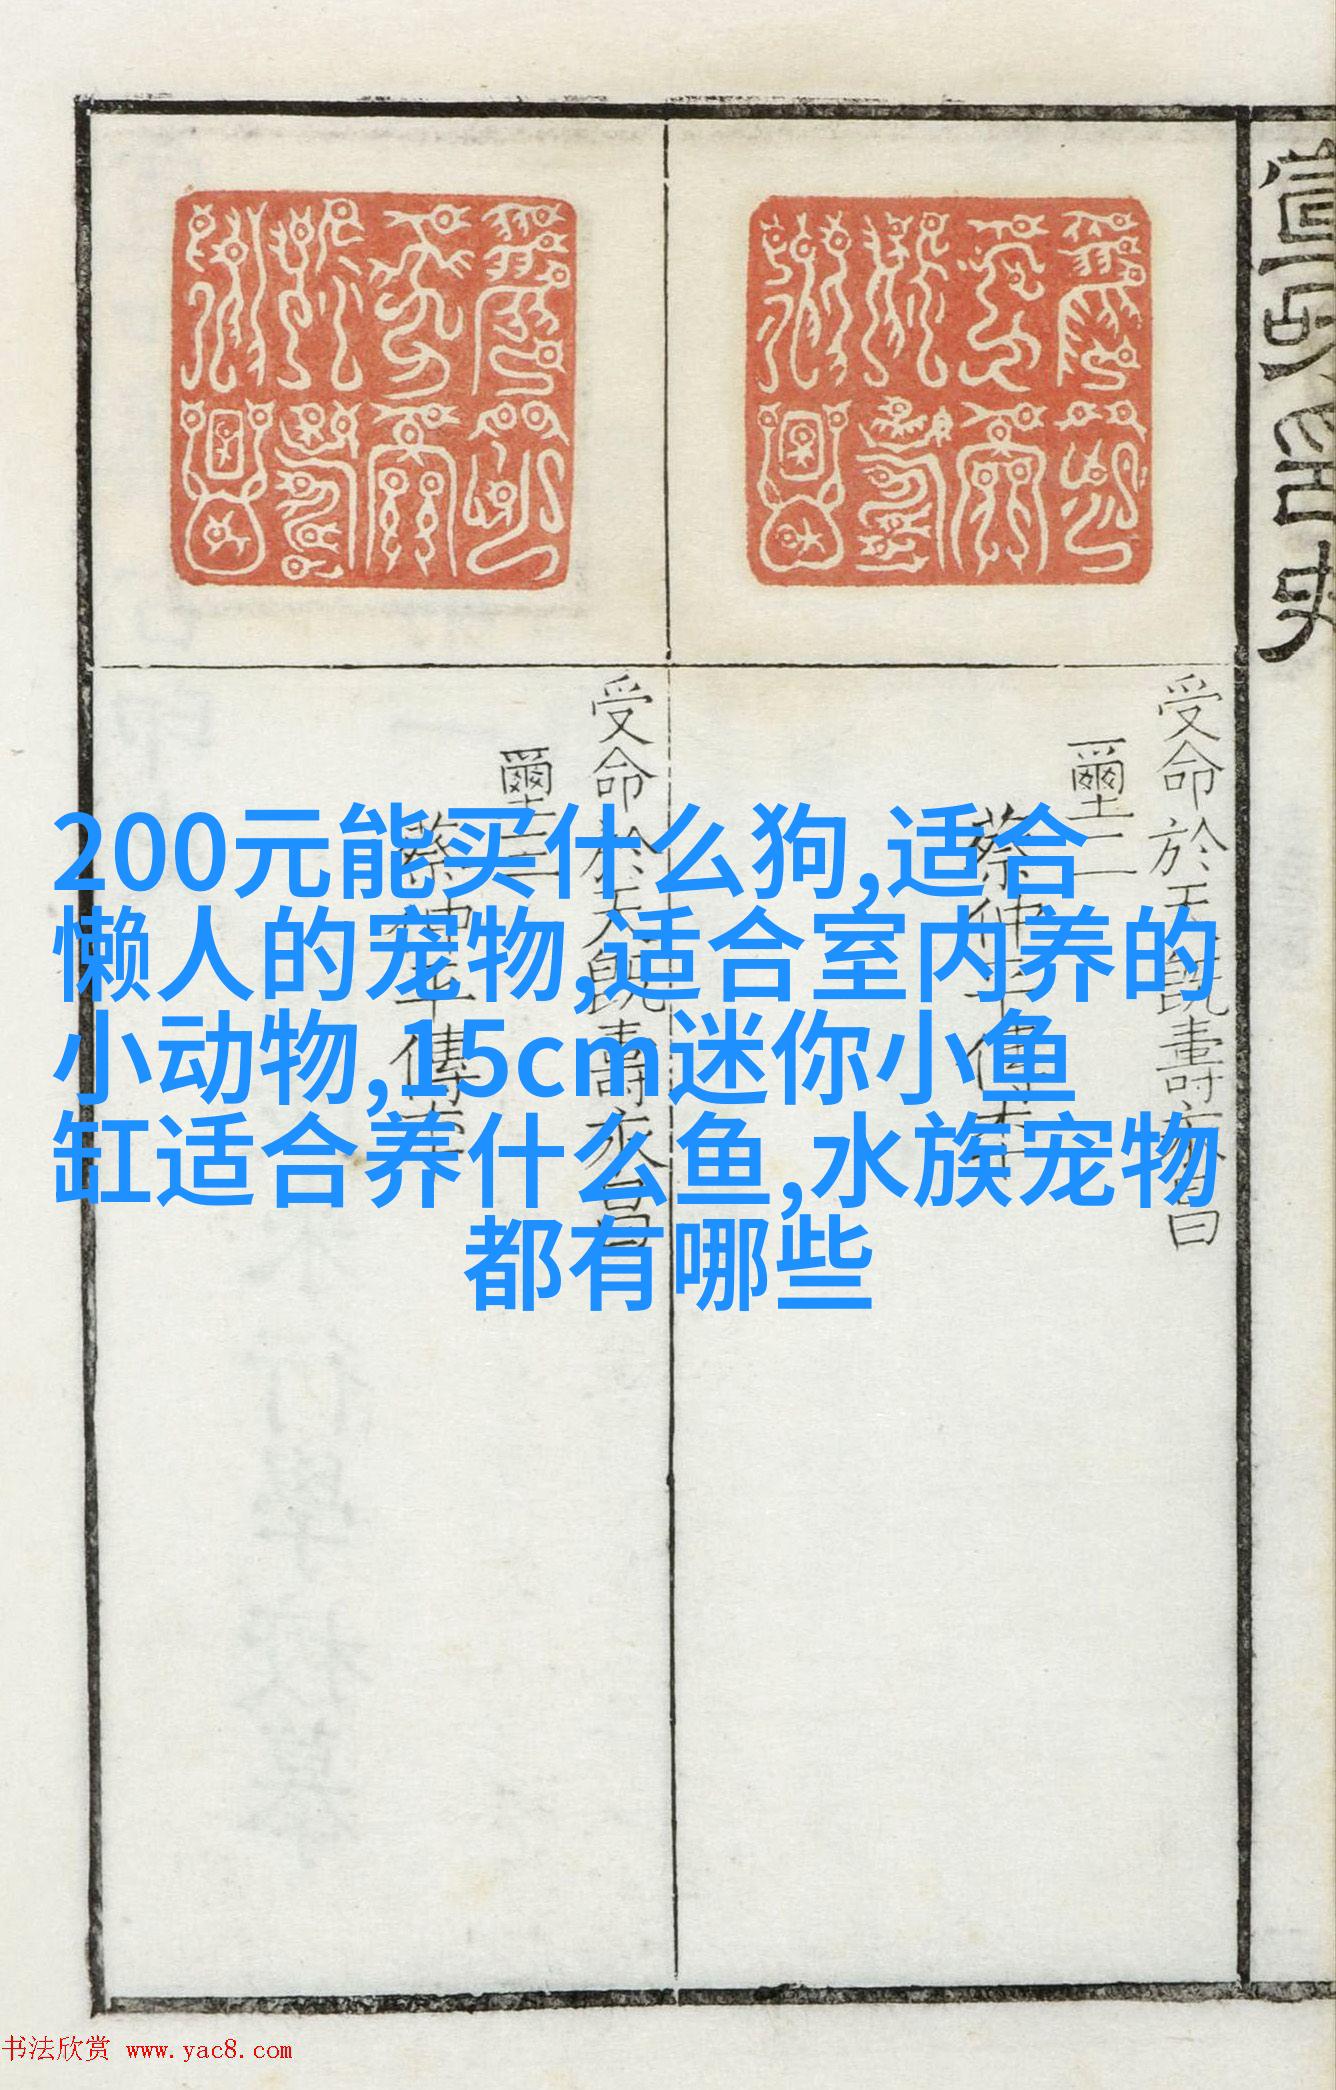 受命於天既壽永昌
璽二
蔡仲平傳本
受命於天既壽永昌
璽三
蔡仲平傳本
200元能买什么狗,适合
懒人的宠物,适合室内养的
小动物,15cm迷你小鱼
缸适合养什么鱼,水族宠物
都有哪些
书法欣赏 www.yac8.com